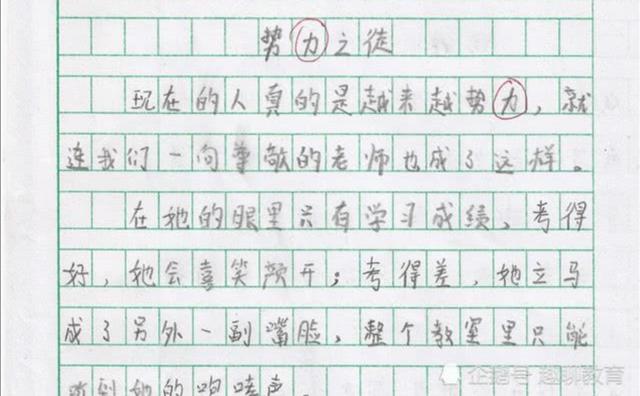 势力之徒
现在的人真的是越来越势力，就
连我们一向尊敬的老师也成了这样。
在她的眼里只有学习成绩，考得
好，她会喜笑颜开；考得差，她立马
成了另外一副嘴脸，整个教室里只能
听到她的咆哮声。
企鹅号 趣聊教育